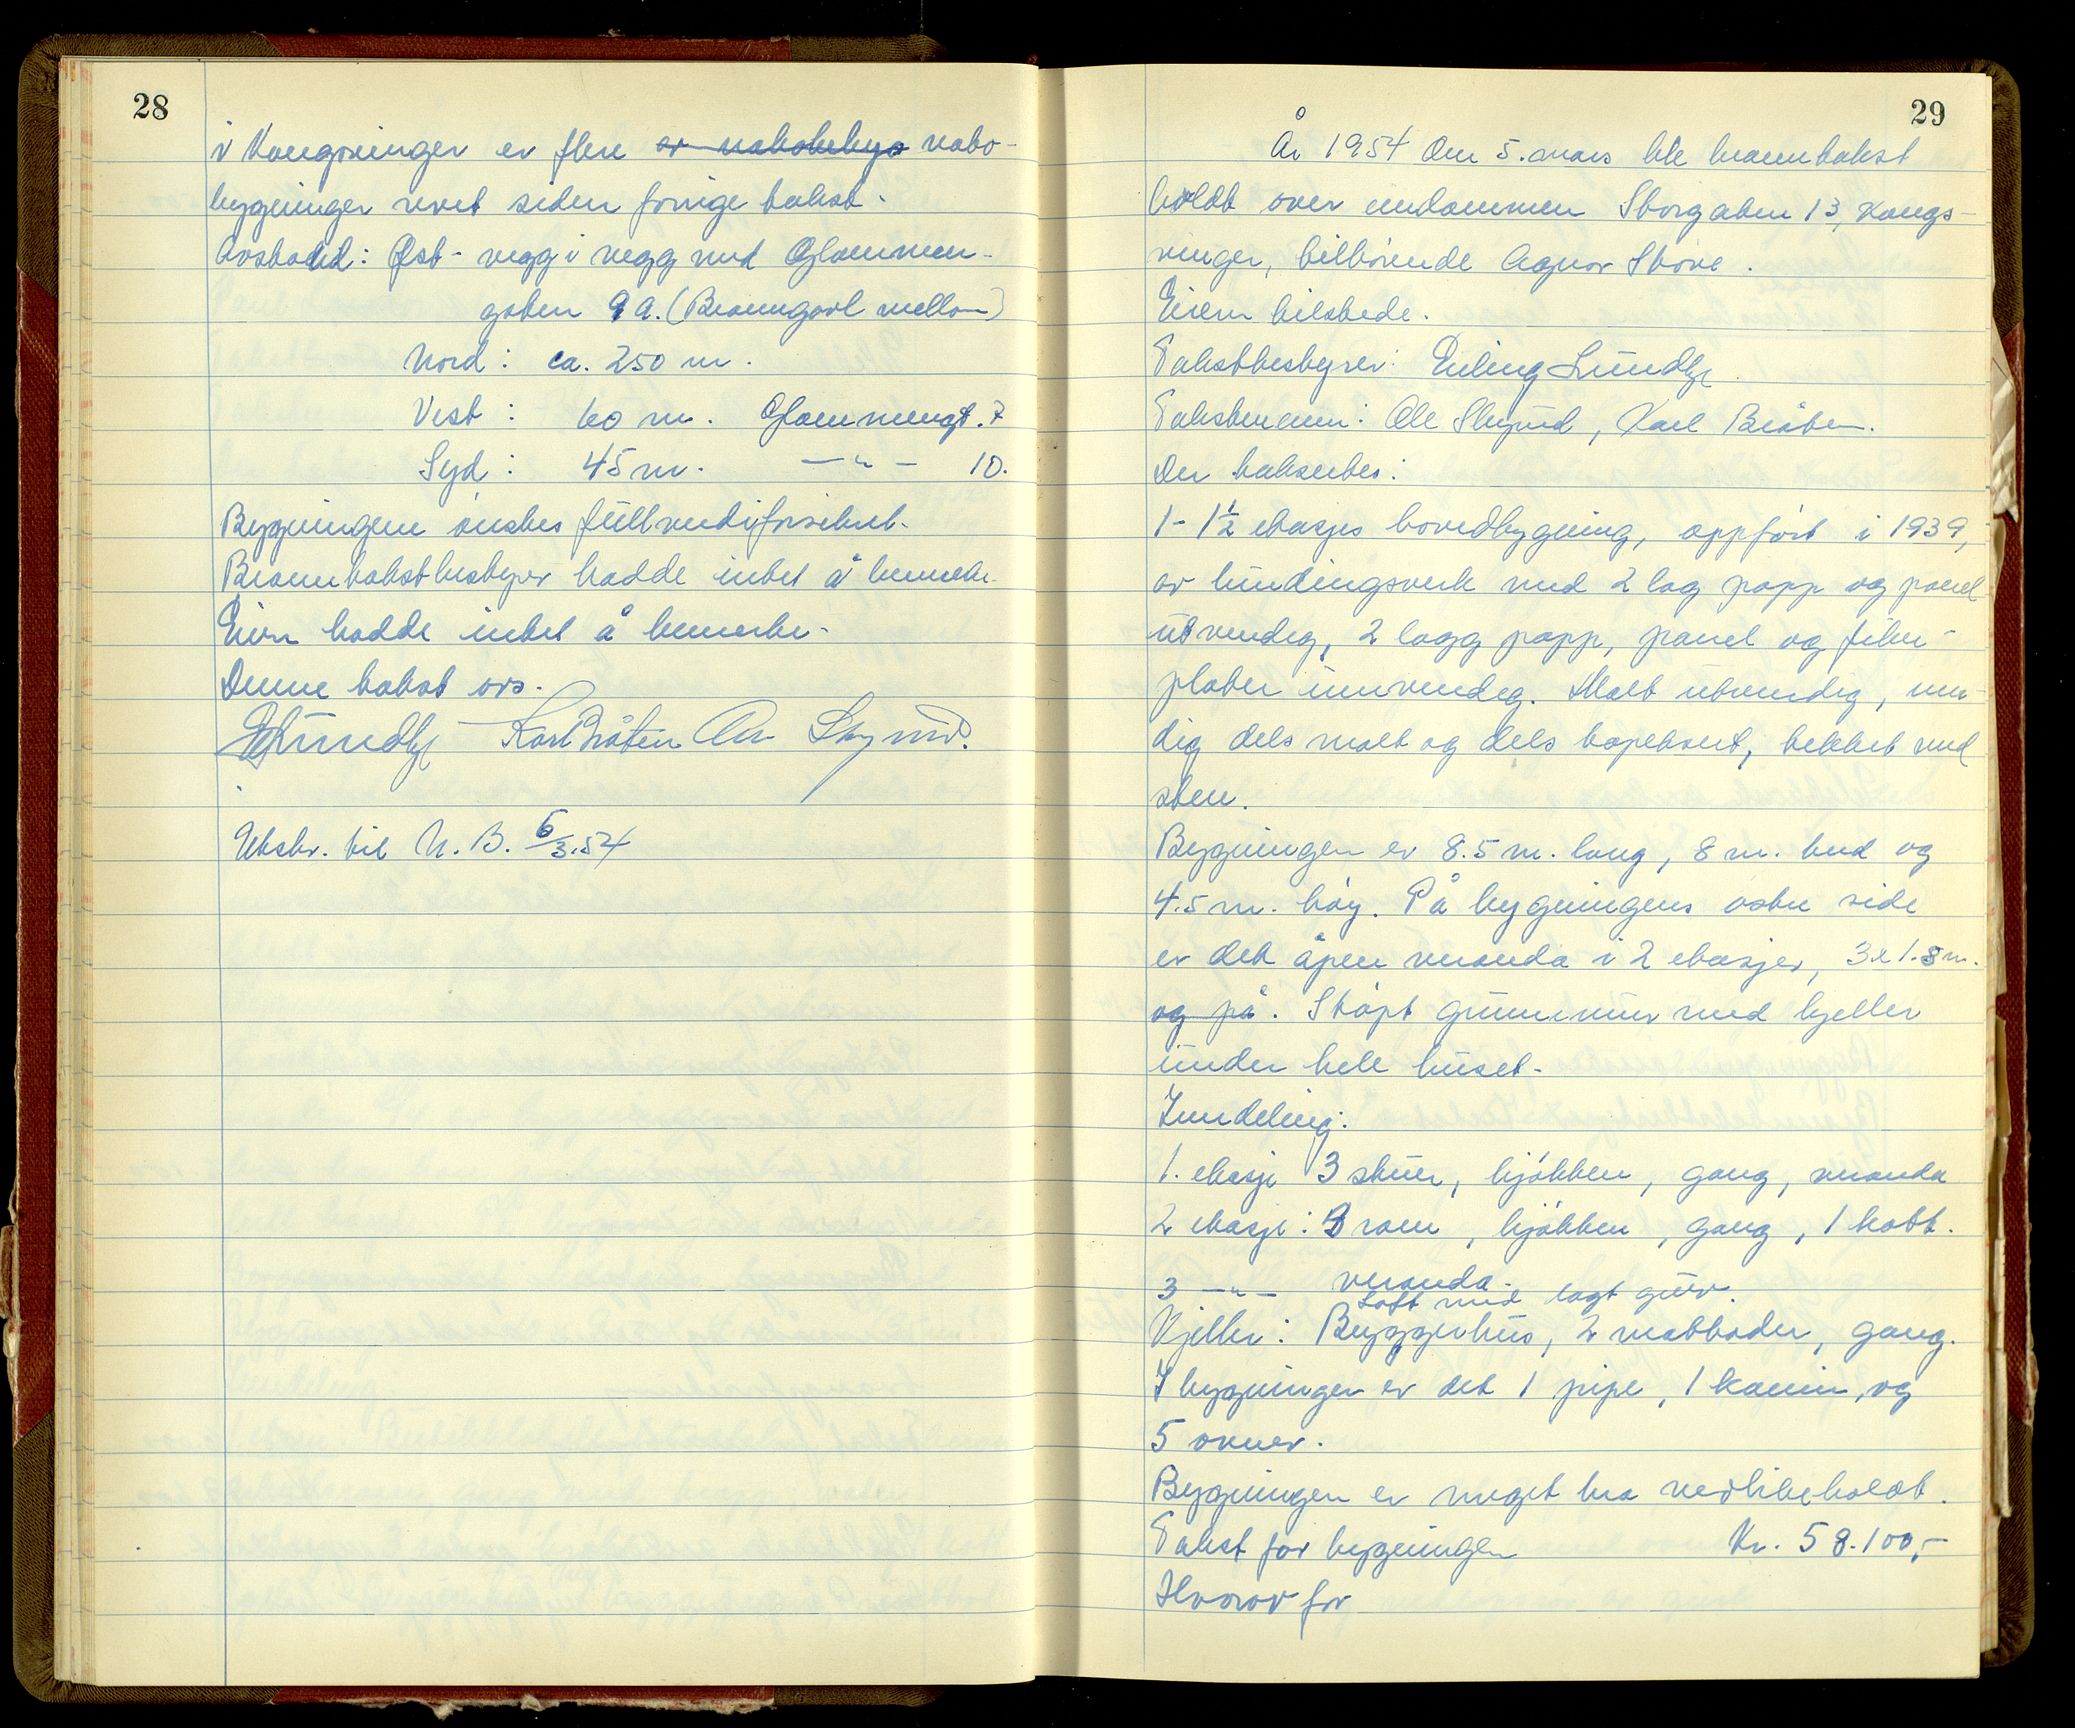 28
i Kongsvinger er flere av nabobebyg nabo-
bygninger revet siden forrige takst.
Avstand: Øst - vegg i vegg med Glommen-
gaten 9 A. (Branngavl mellom)
Nord: ca. 250 m.
Vest: 60 m. Glommengt. 7
Syd: 45 m. —"— 10.
Bygningene ønskes fullverdiforsikret.
Branntakstbestyrer hadde intet å bemerke.
Eieren hadde intet å bemerke.
Denne takst avs.
E Lundby Karl Bråten Ole Skyrud.
Utskr. til N.B. 6/3.54
29
År 1954 den 5. mars ble branntakst
holdt over eiendommen Storgaten 13, Kongs-
vinger, tilhørende Agnar Støve.
Eieren tilstede.
Takstbestyrer: Erling Lundby
Takstmenn: Ole Skyrud, Karl Bråten.
Der taksertes:
1- 1½ etasjes hovedbygning, oppført i 1939,
av bindingsverk med 2 lag papp og panel
utvendig, 2 lagg papp, panel og fiber-
plater innvendig. Malt utvendig, inn-
dig dels malt og dels tapetsert, tekket med
sten.
Bygningen er 8.5 m. lang, 8 m. bred og
4.5 m. høy. På bygningens østre side
er det åpen veranda i 2 etasjer, 3 x 1.8 m.
og på. Støpt grunnmur med kjeller
under hele huset.
Inndeling:
1. etasje 3 stuer, kjøkken, gang, veranda
2 etasje: 3 rom, kjøkken, gang, 1 kott.
veranda.
3 —"— Loft med lagt gulv.
Kjeller: Bryggerhus, 2 matboder, gang.
I bygningen er det 1 pipe, 1 kamin, og
5 ovner.
Bygningen er meget bra vedlikeholdt.
Takst for bygningen Kr. 58.100,-
Hvorav for